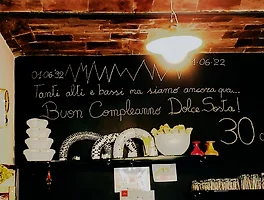 01·06·92 01·06·22
Tanti alti e bassi ma siamo ancora qua...
Buon Compleanno Dolce Sosta!
30